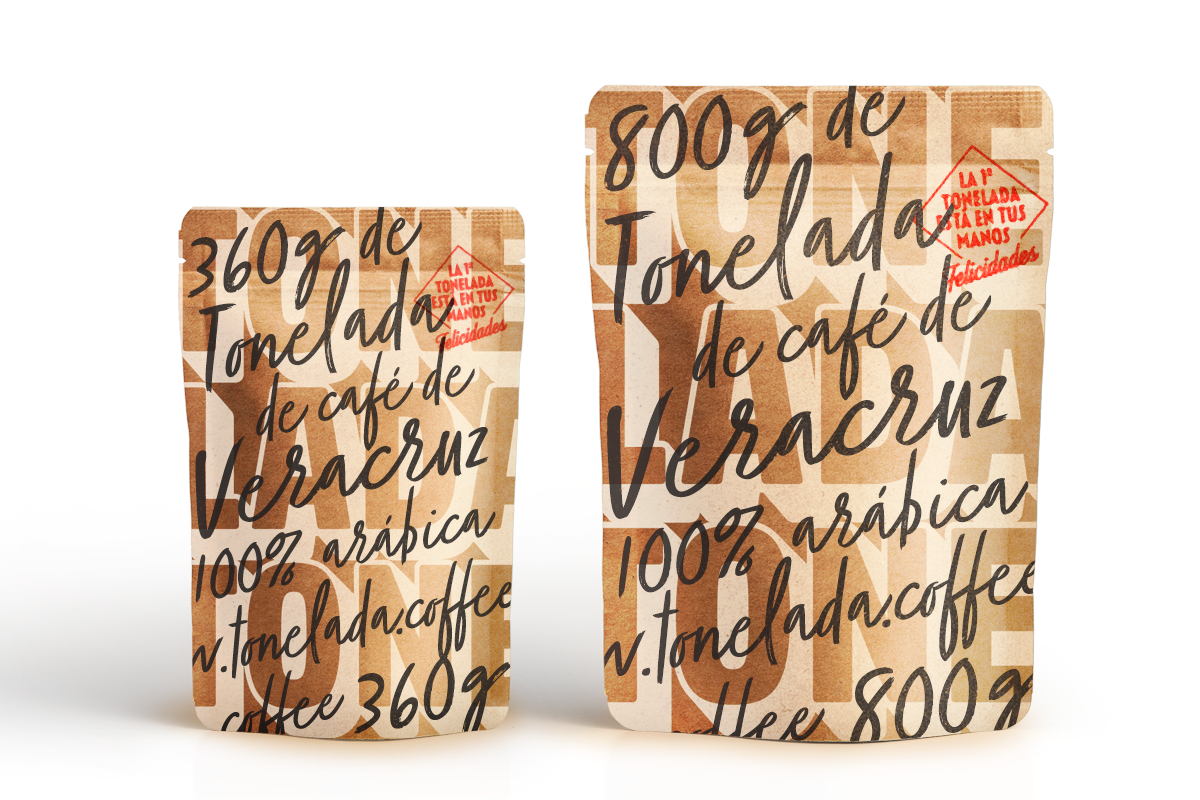 360g de
Tonelada
de café de
Veracruz
100% arábica
w.tonelada.coffee
coffee 360g
LA 1ª
TONELADA
ESTÁ EN TUS
MANOS
Felicidades
TONE
LADA
TONE
800g de
Tonelada
de café de
Veracruz
100% arábica
w.tonelada.coffee
coffee 800g
LA 1ª
TONELADA
ESTÁ EN TUS
MANOS
Felicidades
TONE
LADA
TONE